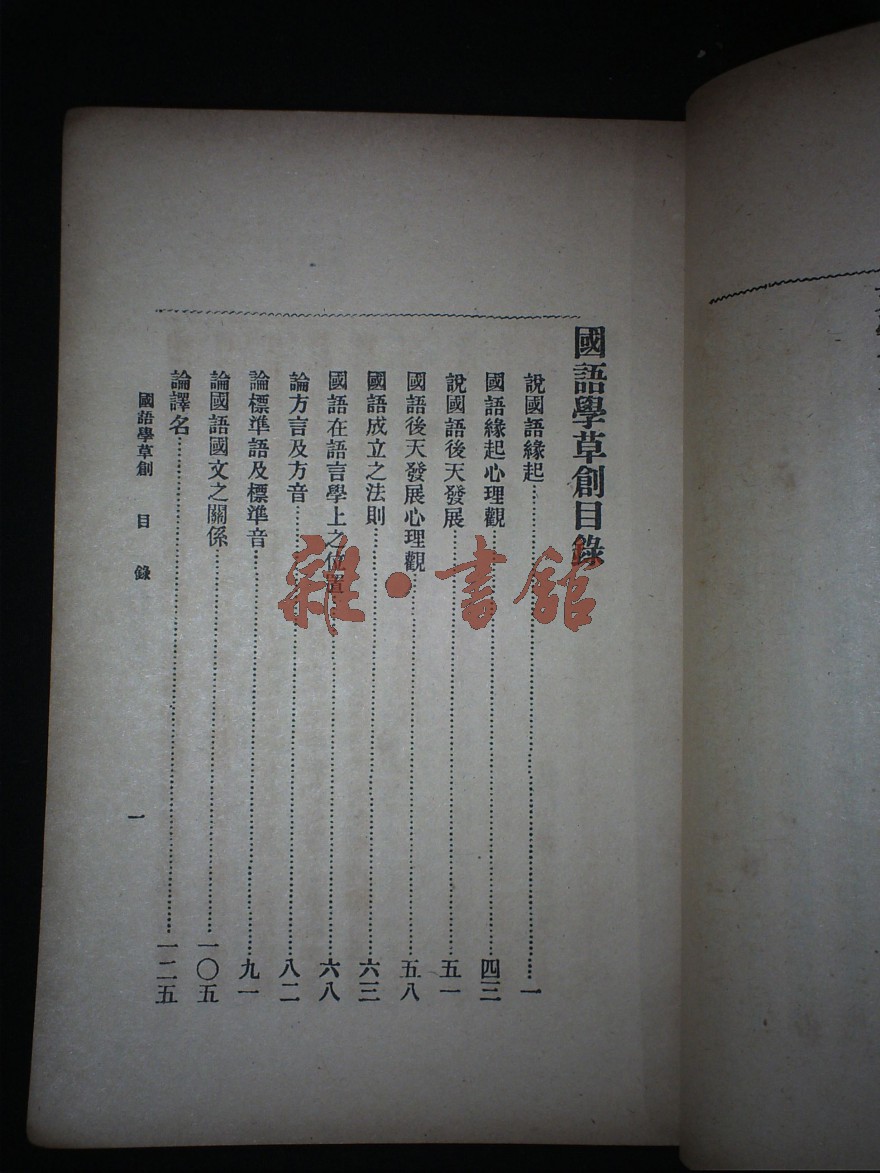 國語學草創目錄
說國語緣起……一
國語緣起心理觀……四三
說國語後天發展……五一
國語後天發展心理觀……五八
國語成立之法則……六三
國語在語言學上之位置……六八
論方言及方音……八二
論標準語及標準音……九一
論國語國文之關係……一〇五
論譯名……一二五
國語學草創 目錄
一
雜·書館